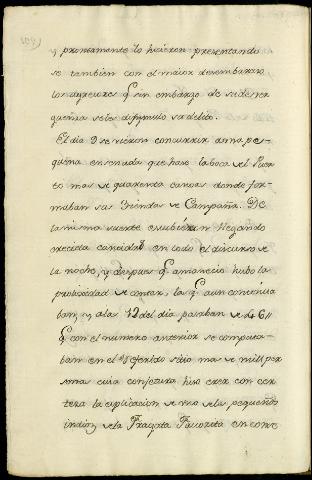 y prontamente lo hicieron presentando
se tambien con el maior desembarazo
los agresores q̃ sin embargo de su desver
guenza se les disimulo su delito.
El dia 9 se vieron concurrir a una pe
queña ensenada que hace la boca del Puer
to mas de quarenta canoas donde for
maban sus Tiendas de Campaña. De
la misma suerte estubieron llegando
crecida cantidad en todo el discurso de
la noche, y despues q̃ amanecio hubo la
proligidad de contar, las q̃ aun continua
ban, y a las 12 del dia pasaban de 46
q̃ con el numero anterior se computa
ban en el referido sitio mas de mill per
sonas cuia conjetura hiso creer con cer
tera la esplicacion de uno de los pequeños
indios de la Fragata Favorita en como